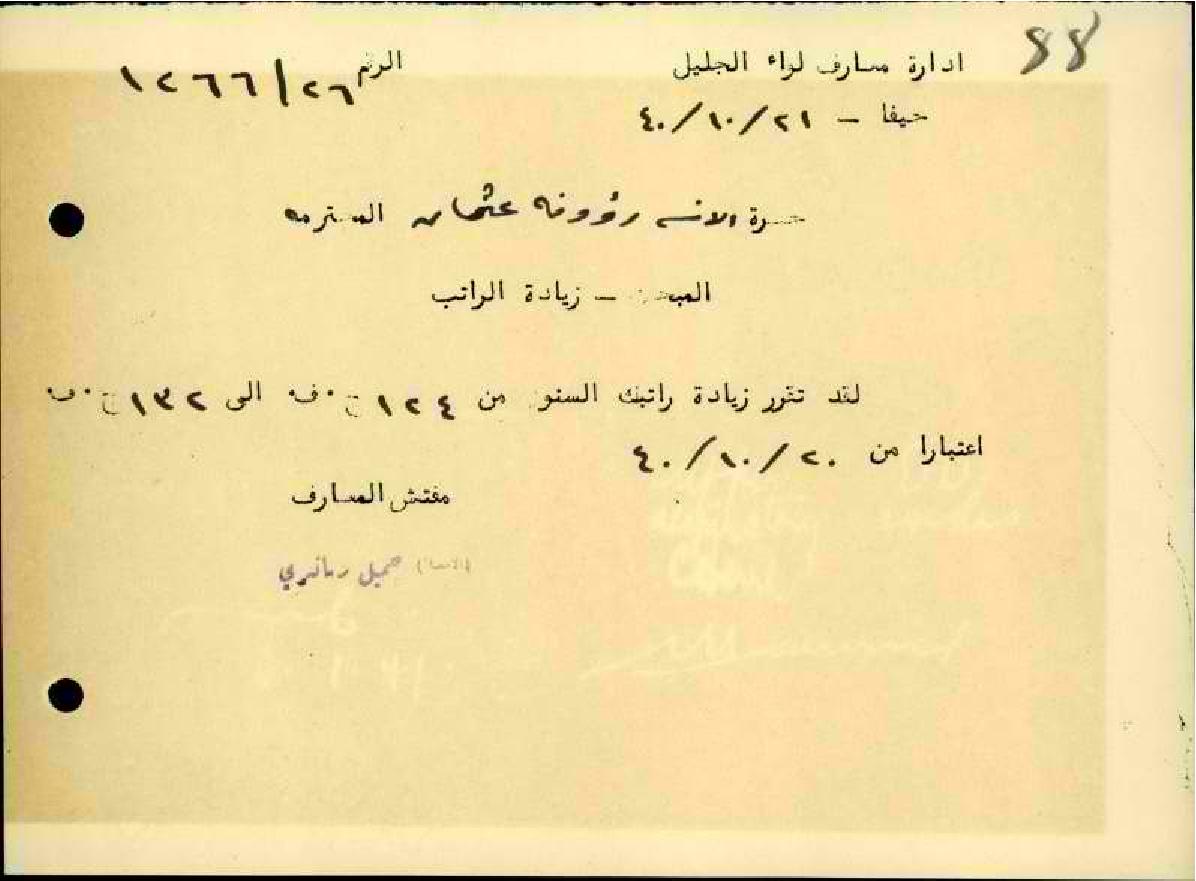 88
ادارة معارف لواء الجليل
الرقم ١٢٦٦/٢٦
حيفا - ٢١/١٠/٤٠
حضرة الانسه رؤوفه عثمان المحترمه
المبحث - زيادة الراتب
لقد تقرر زيادة راتبك السنوي من ١٢٤ ج٠ف٠ الى ١٣٢ ج٠ف٠
اعتبارا من ٢٠/١٠/٤٠
مفتش المعارف
(الامضاء) جميل